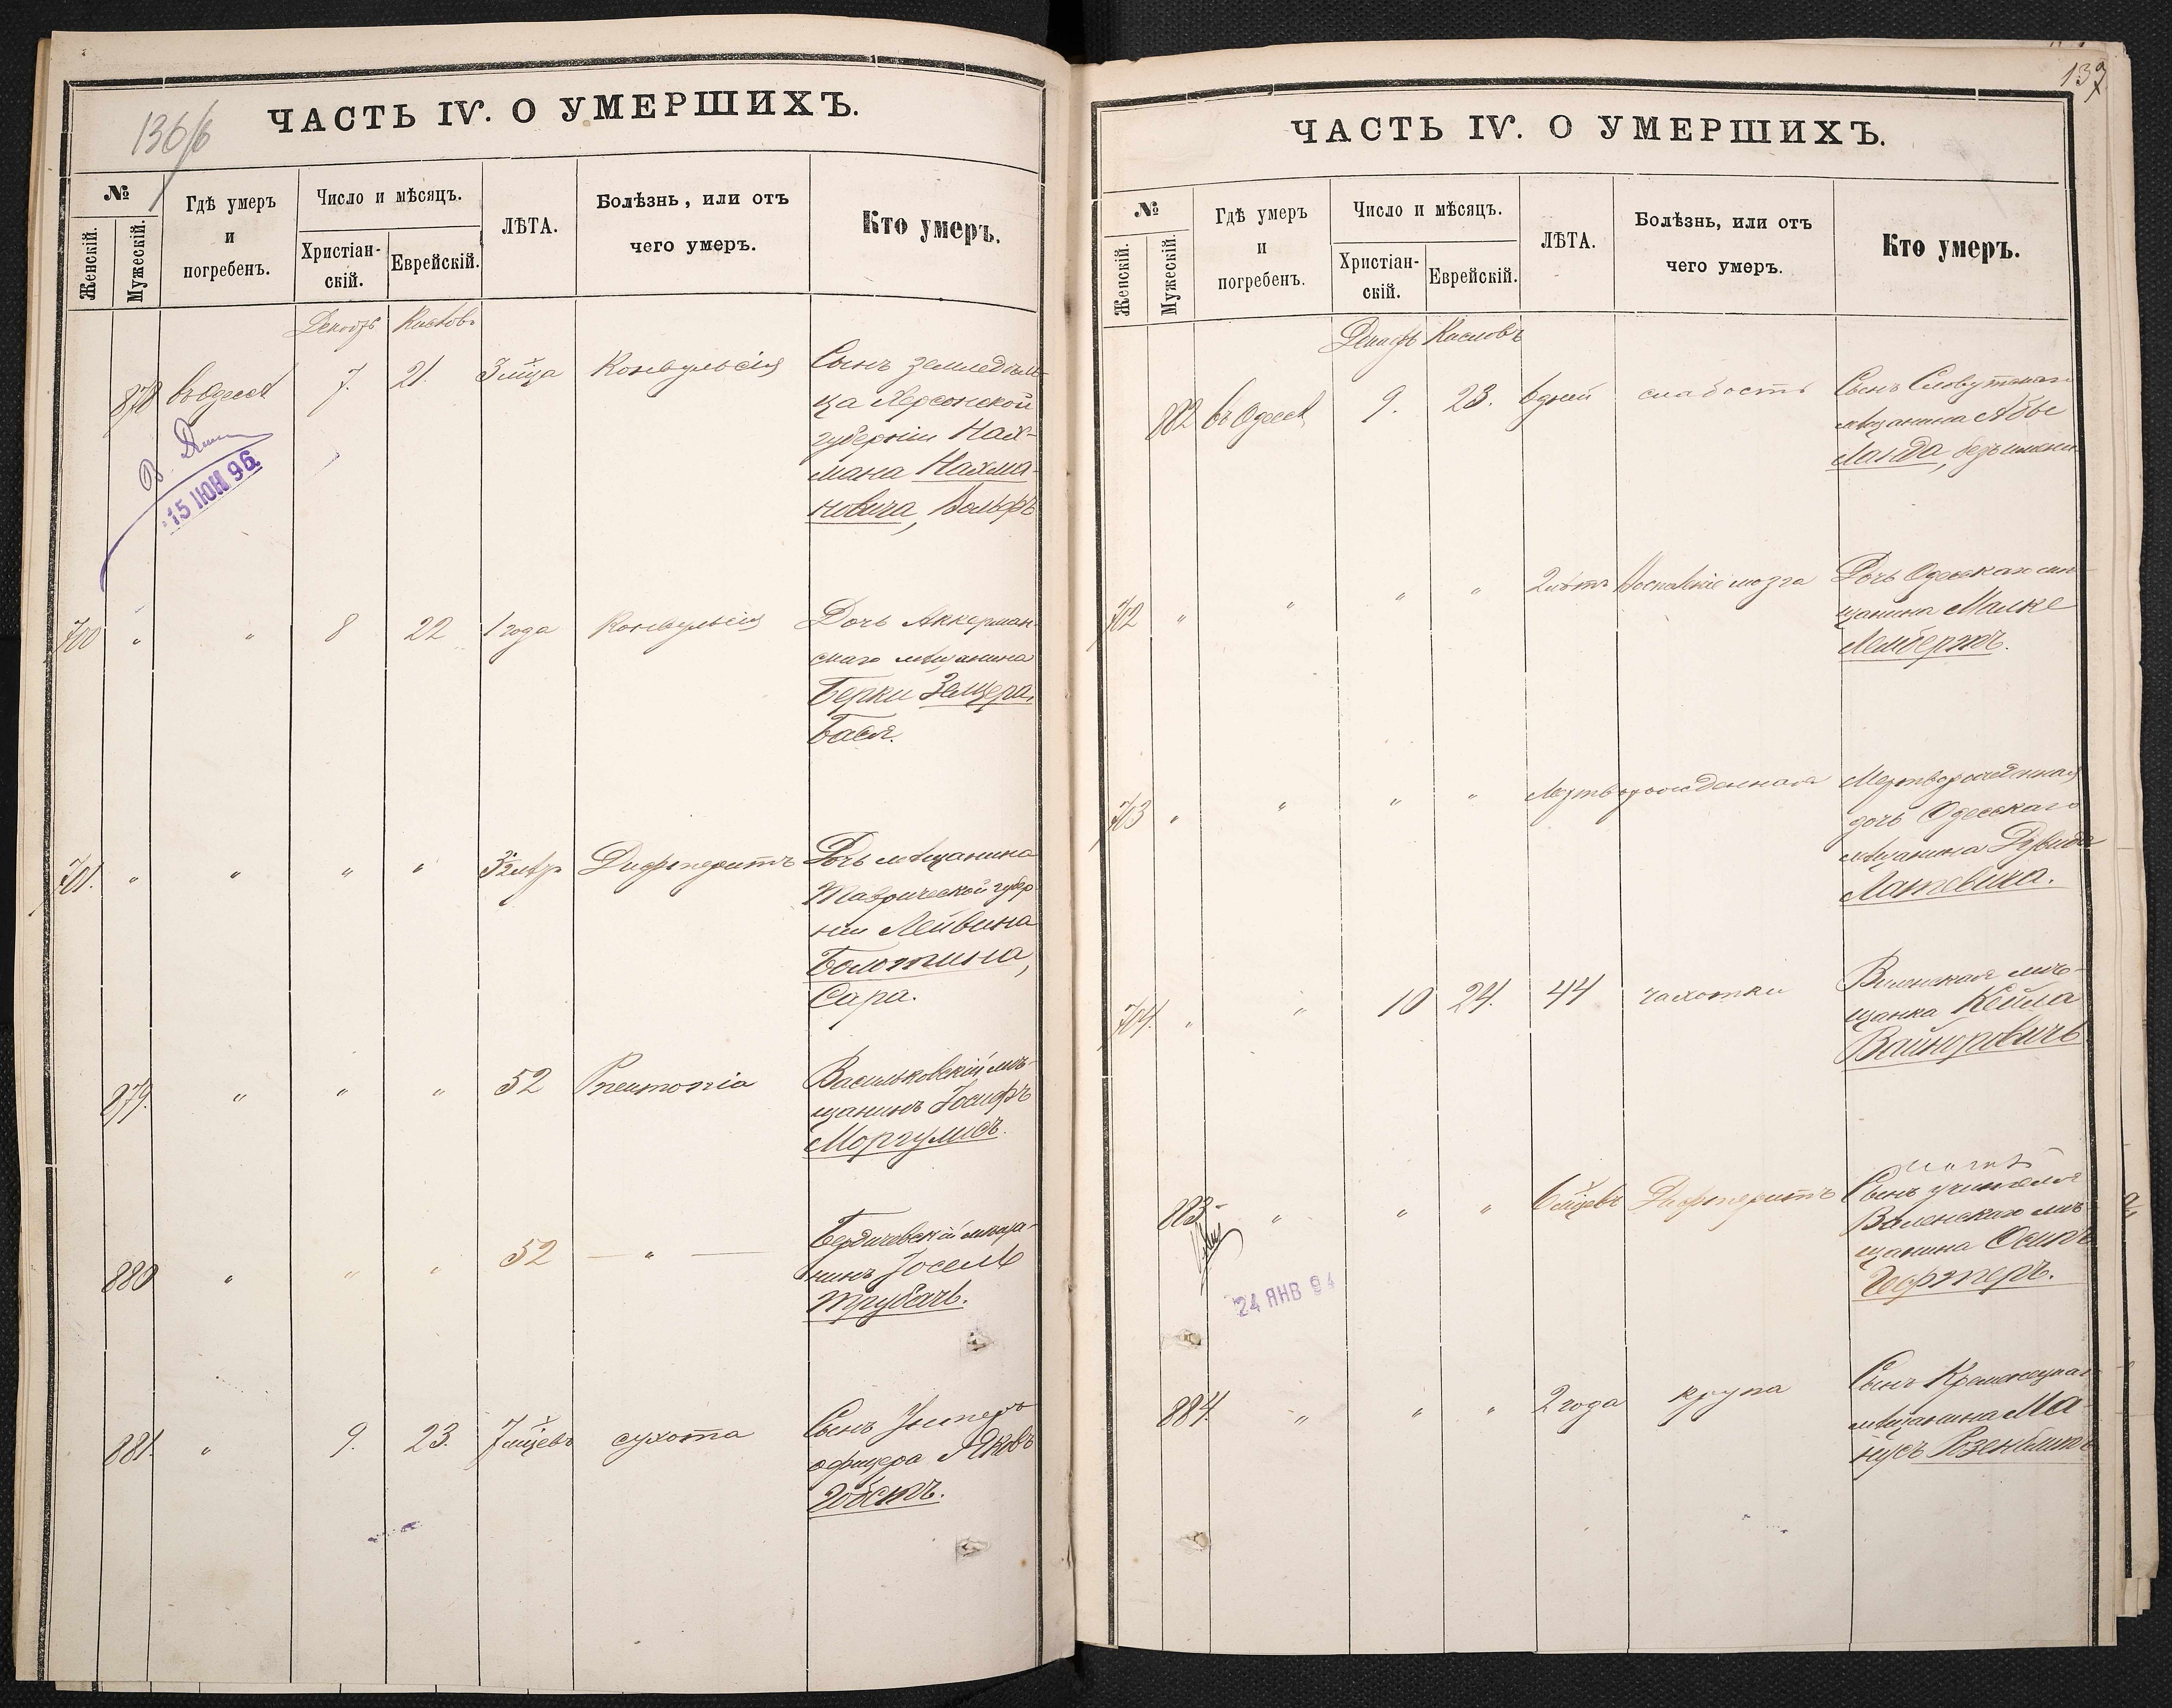 136/б
ЧАСТЬ IV. О УМЕРШИХЪ.
№
Женскій.
Мужескій.
Гдѣ умеръ
и
погребенъ.
Число и мѣсяцъ.
Христіан-
скій.
Еврейскій.
ЛѢТА.
Болѣзнь, или отъ
чего умеръ.
Кто умеръ.
878 въ Одессѣ 7. 21. 3 мца Конвульсія Сынъ земледѣль-
ца Херсонской
губерніи Нах-
мана Нахма-
новича, Вольфъ
15 ІЮН 96
700 " " 8 22 1 года Конвульсія Дочь Аккерман-
скаго мѣщанина
Берки Зельцера,
Бася.
701. " " " " Дифтеритъ Дочь мѣщанина
Таврической губер-
ніи Лейвина
Болотина,
Сара.
879. " " " 52 Pneumonia Васильковскій мѣ-
щанинъ Іосифъ
Моргулисъ.
880 " " " 52 — " — Бердичевскій мѣща-
нинъ Іосель
Трубачъ.
881. " 9. 23. 7 мцевъ сухота Сынъ Унтеръ
офицера Яковъ
137
ЧАСТЬ IV. О УМЕРШИХЪ.
№
Женскій.
Мужескій.
Гдѣ умеръ
и
погребенъ.
Число и мѣсяцъ.
Христіан-
скій.
Еврейскій.
ЛѢТА.
Болѣзнь, или отъ
чего умеръ.
Кто умеръ.
Кисловъ
882 въ Одессѣ 9. 23. 6 дней слабость Сынъ Славутскаго
мѣщанина Абы
Ланда, безъ имени
702 " " " " 2 лѣтъ Воспаленіе мозга Дочь Одесскаго мѣ-
щанина Малке
Лембергъ.
703 " " " " Мертворожденная Мертворожденная
дочь Одесскаго
мѣщанина Давида
704. " " 10 24. 44 чахотки Виленская мѣ-
щанка Кейла
883 " " " 6 мцевъ Дифтеритъ Сынъ учителя
Виленскаго мѣ-
щанина Осипъ
24 ЯНВ 94
884. " " " 2 года крупа Сынъ
мѣщанина Ма-
нусъ